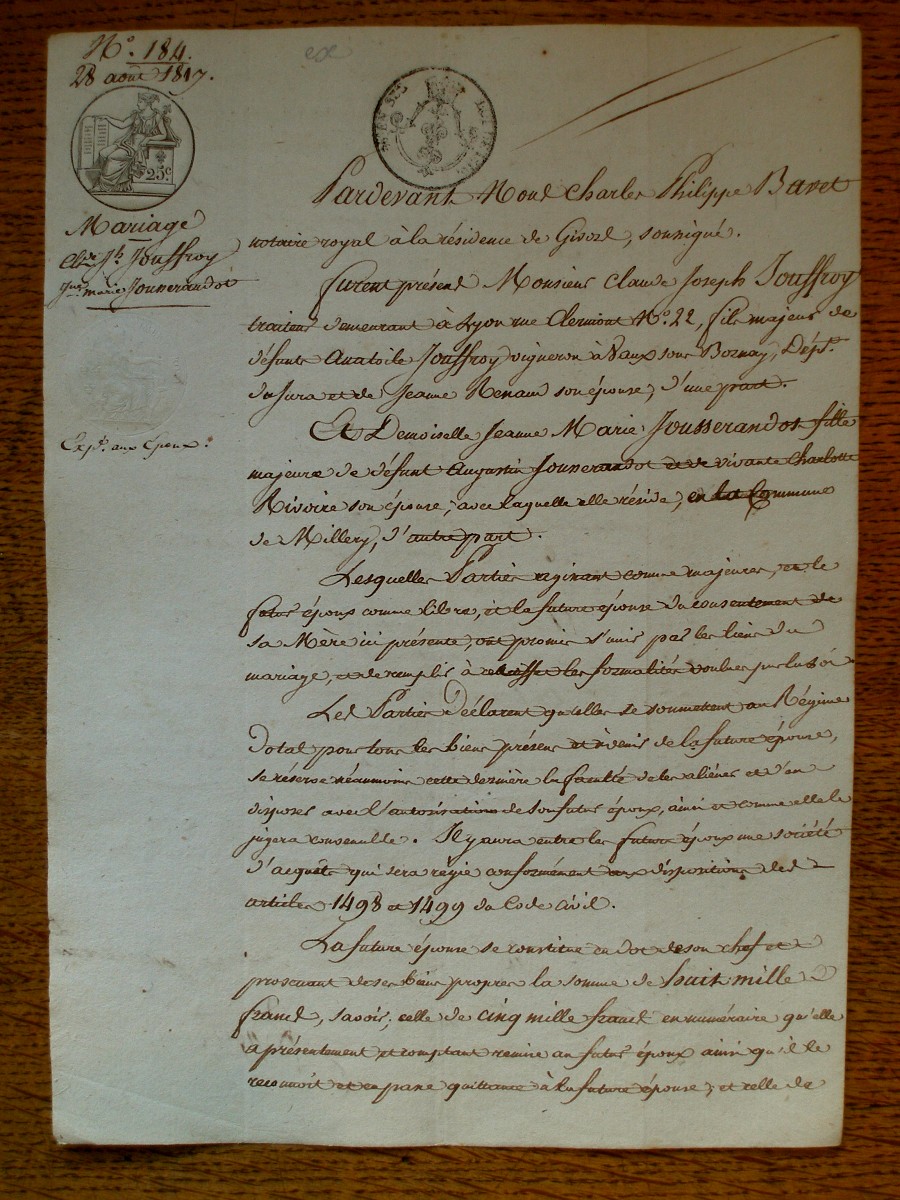 N° 184.
28 août 1817.
25c
Mariage
Clde Jh Jouffroy
Jne marie Jousserandot
Expn. aux Epoux.
Pardevant Nous Charles Philippe Bavet
notaire royal à la résidence de Givors, soussigné.
furent présens Monsieur Claude Joseph Jouffroy
traiteur demeurant à Lyon rue Clermont N°. 22, fils majeur de
défunts Anatoile Jouffroy vigneron à Vaux sous Bornay, Dépt.
du Jura et de Jeanne Renaud son épouse, d'une part.
Et Demoiselle Jeanne Marie Jousserandot fille
majeure de défunt Augustin Jousserandot et de vivante Charlotte
Rivoire son épouse, avec laquelle elle réside, en la Commune
de Millery, d'autre part.
Lesquelles Parties agissant comme majeures, et le
futur époux comme libre, et la future épouse du consentement de
sa Mère ici présente, ont promis s'unir par les liens du
mariage, et de remplir à cet effet les formalités voulues par la loi.
Les Parties déclarent qu'elles se soumettent au Régime
dotal pour tous les biens présens et à venir de la future épouse,
se réserve néanmoins cette dernière la faculté de les aliéner et d'en
disposer avec l'autorisation de son futur époux, ainsi et comme elle le
jugera convenable. Il y aura entre les futurs époux une société
d'acquêts qui sera régie conformément aux dispositions des
articles 1498 et 1499 du Code civil.
La future épouse se constitue en dot de son chef et
provenant de ses biens propres la somme de huit mille
francs, savoir; celle de cinq mille francs en numéraire qu'elle
a présentement et comptant remise au futur époux ainsi qu'il le
reconnoit et en passe quittance à la future épouse; et celle de